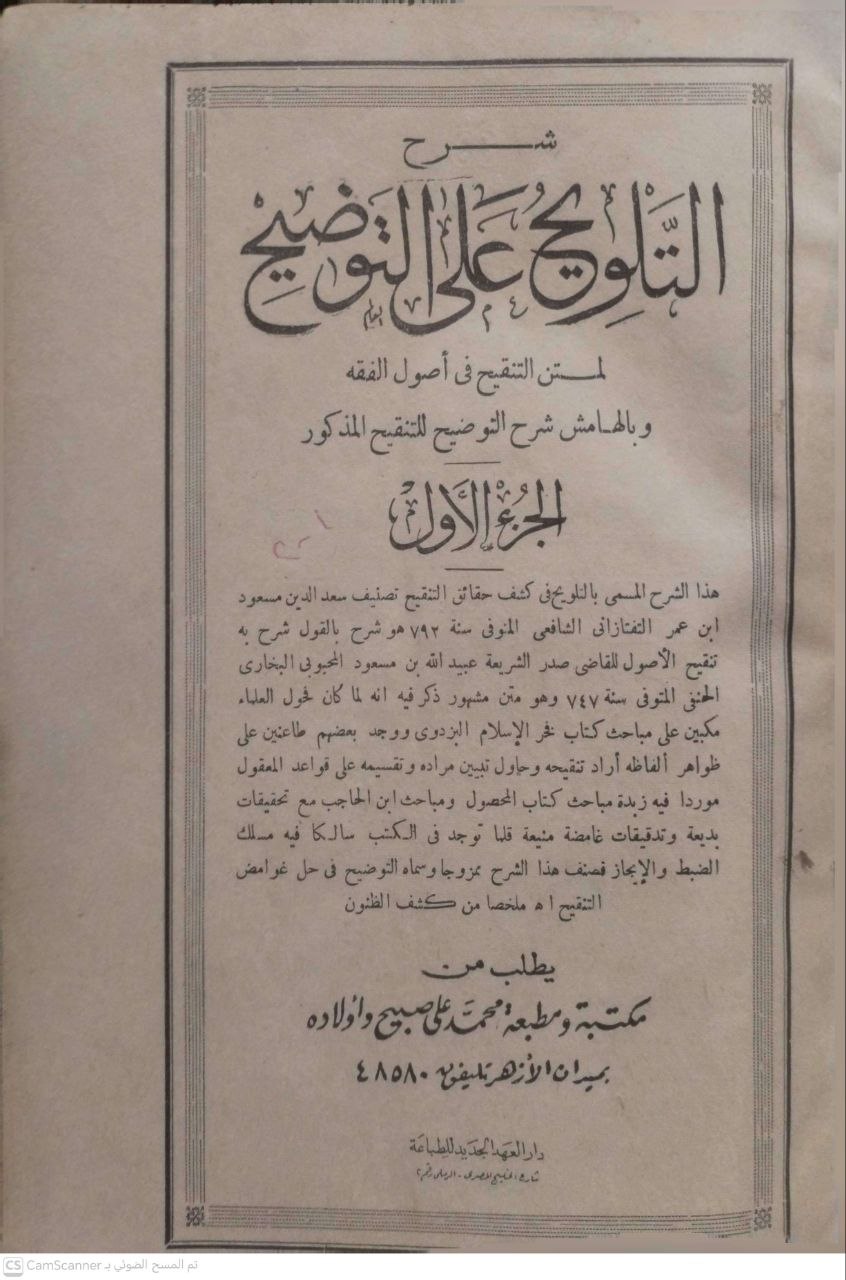 شرح
التَّلويحُ عَلى التَوضيح
لمتن التنقيح فى أصول الفقه
وبالهامش شرح التوضيح للتنقيح المذكور
الجزءُ الأَول
هذا الشرح المسمى بالتلويح فى كشف حقائق التنقيح تصنيف سعد الدين مسعود
ابن عمر التفتازانى الشافعى المتوفى سنة ٧٩٢ هو شرح بالقول شرح به
تنقيح الأصول للقاضى صدر الشريعة عبيد الله بن مسعود المحبوبى البخارى
الحنفى المتوفى سنة ٧٤٧ وهو متن مشهور ذكر فيه انه لما كان فحول العلماء
مكبين على مباحث كتاب فخر الإسلام البزدوى ووجد بعضهم طاعنين على
ظواهر ألفاظه أراد تنقيحه وحاول تبيين مراده وتقسيمه على قواعد المعقول
موردا فيه زبدة مباحث كتاب المحصول ومباحث ابن الحاجب مع تحقيقات
بديعة وتدقيقات غامضة منيعة قلما توجد فى الكتب سالكا فيه مسلك
الضبط والإيجاز فصنف هذا الشرح ممزوجا وسماه التوضيح فى حل غوامض
التنقيح اه ملخصا من كشف الظنون
يطلب من
مكتبة ومطبعة محمَّد على صبيح وأولاده
بميدان الأزهر تليفون ٤٨٥٨٠
دار العهد الجديد للطباعة
CS CamScanner تم المسح الضوئي بـ